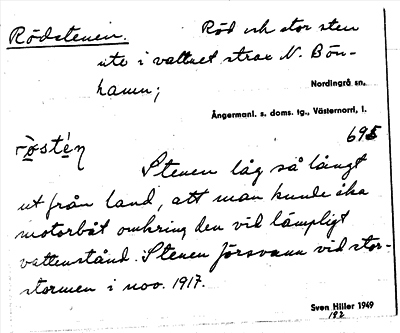 Rödstenen. Röd och stor sten
ute i vattnet strax N. Bön-
hamn;
Nordingrå sn.
Ångermanl. s. doms. tg., Västernorrl. l.
695
röstén
Stenen låg så långt
ut från land, att man kunde åka
motorbåt omkring den vid lämpligt
vattenstånd. Stenen försvann vid stor-
stormen i nov. 1917.
Sven Hiller 1949
182